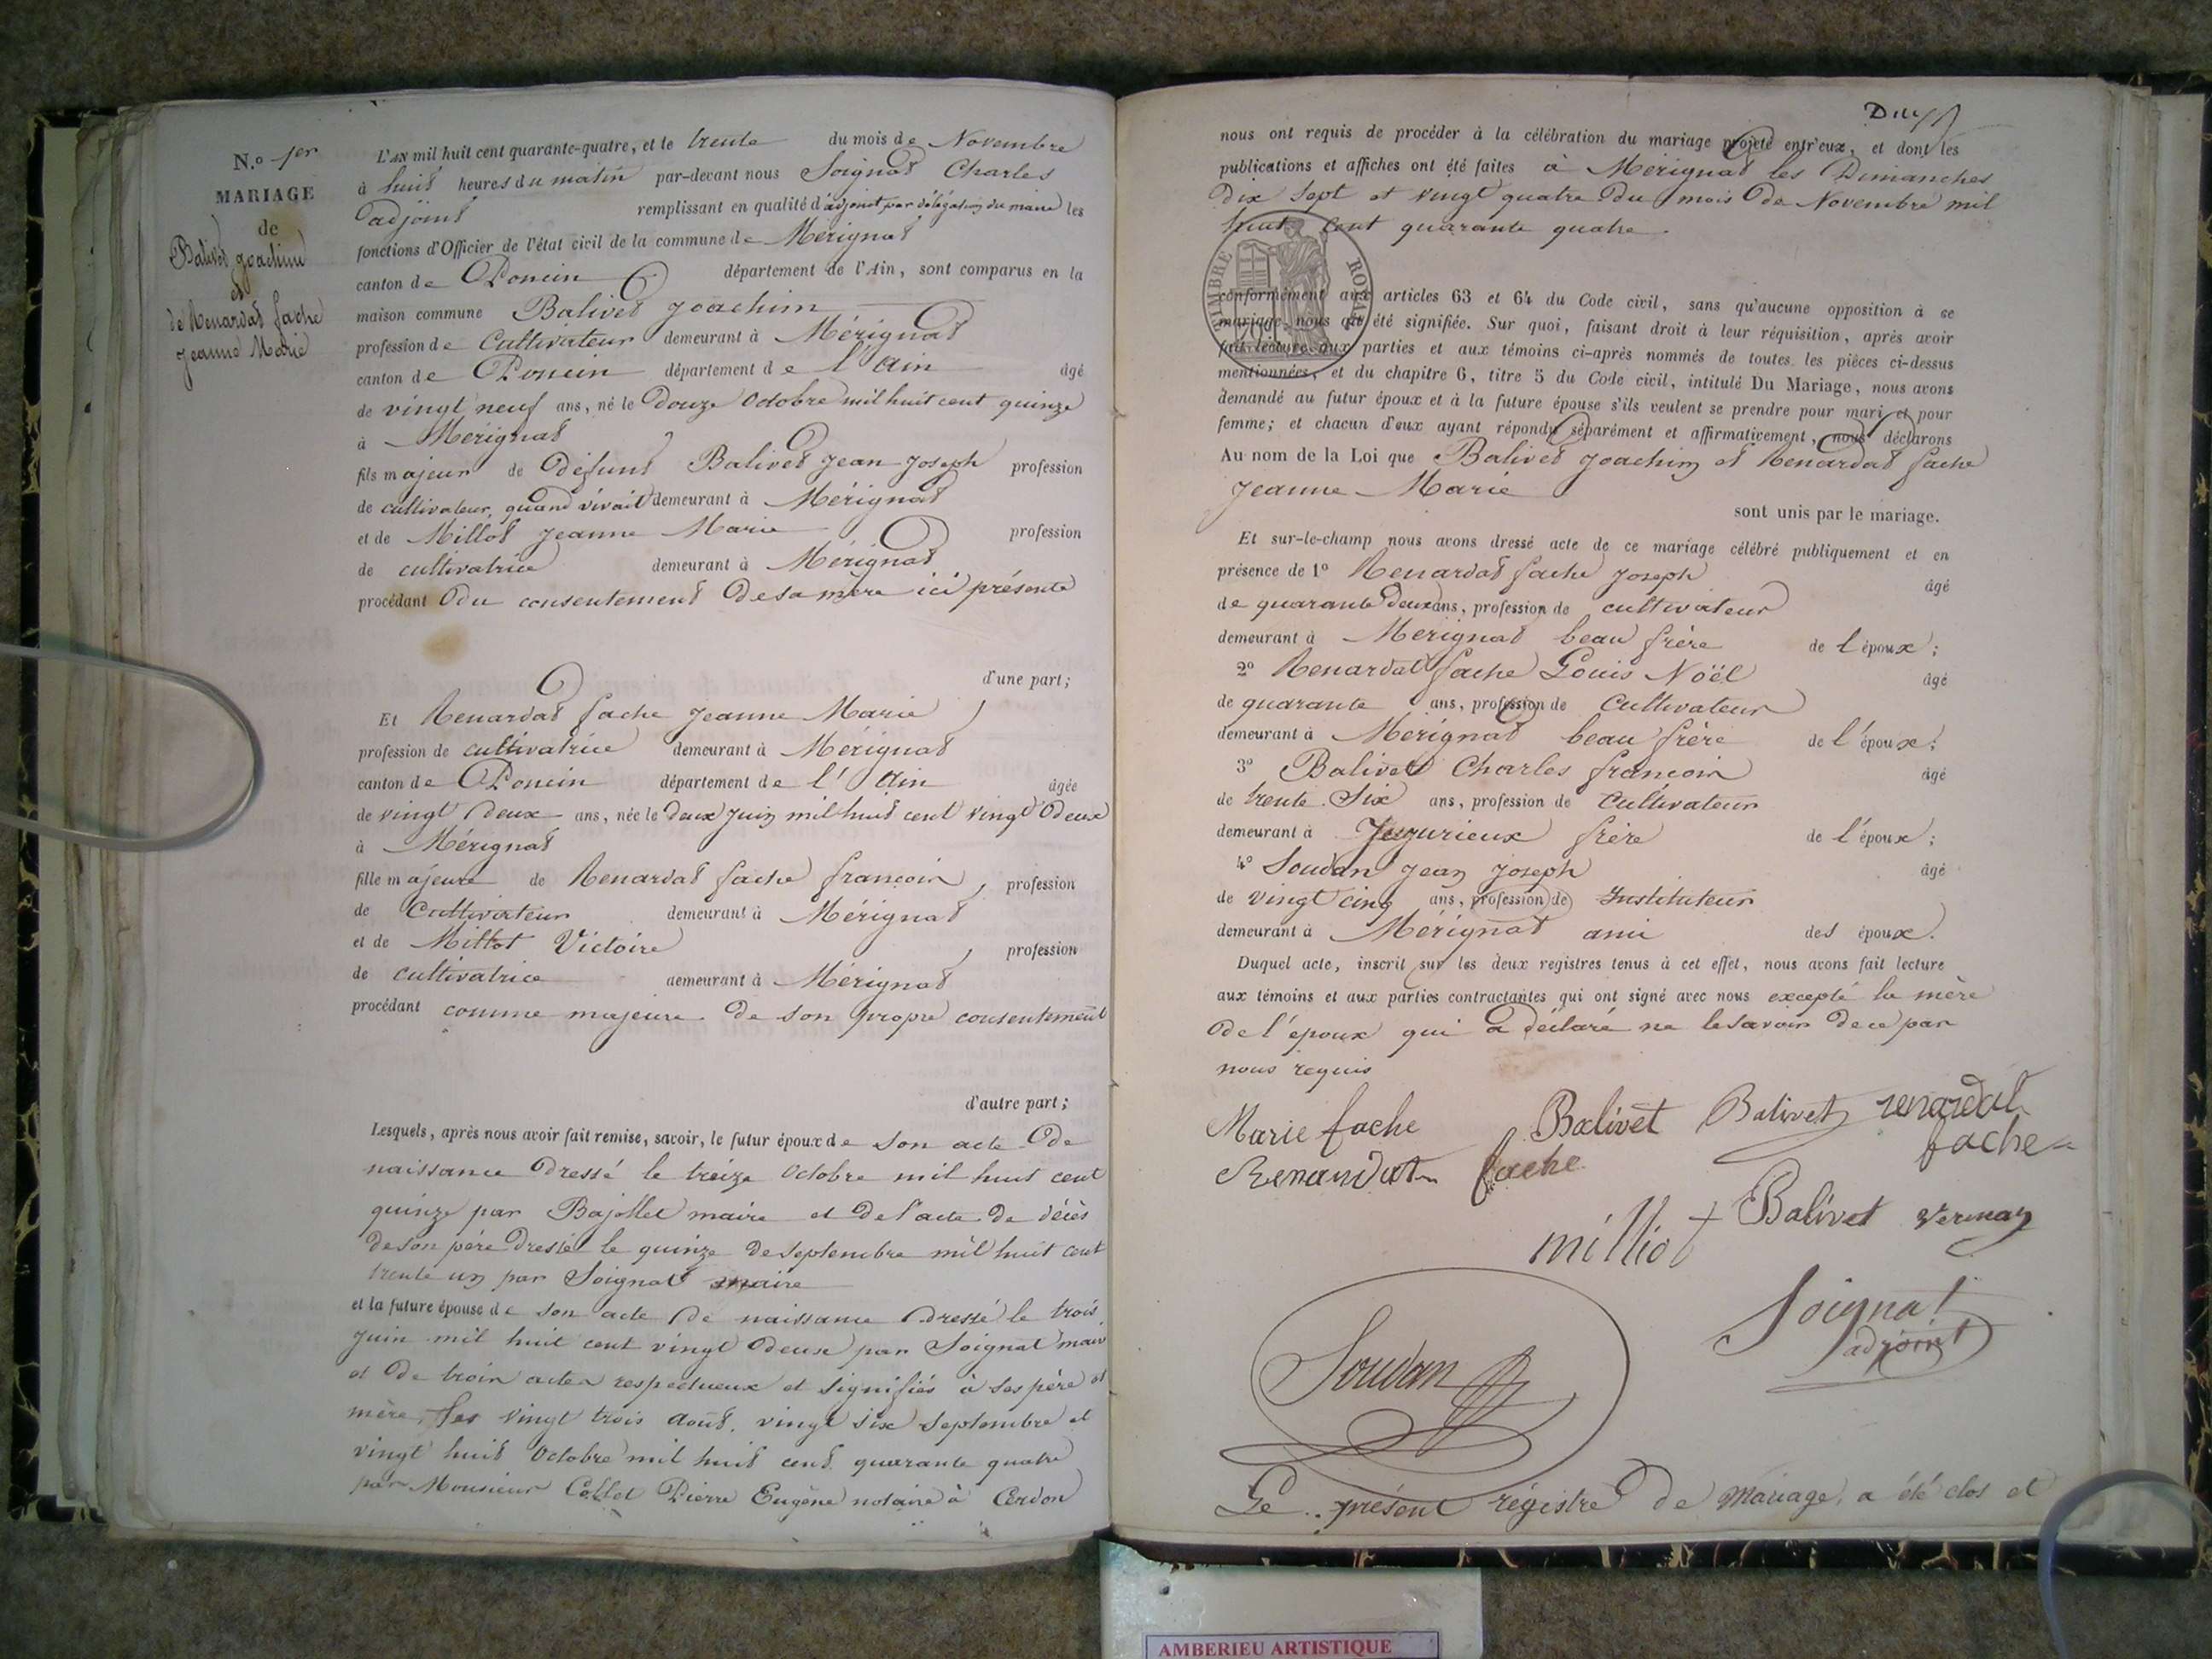 N.o 1er
MARIAGE
de
Balivet joachim
et
de Renardat fache
jeanne Marie
L'AN mil huit cent quarante-quatre, et le trente du mois de Novembre
à huit heures du matin par-devant nous Soignat Charles
adjoint remplissant en qualité d'adjoint par délégation du maire les
fonctions d'Officier de l'état civil de la commune de Mérignat
canton de Poncin département de l'Ain, sont comparus en la
maison commune Balivet joachim
profession de Cultivateur demeurant à Mérignat
canton de Poncin département de l'Ain âgé
de vingt neuf ans, né le Douze Octobre mil huit cent quinze
à Mérignat
fils majeur de Défunt Balivet jean joseph profession
de cultivateur, quand vivait demeurant à Mérignat
et de Millot jeanne Marie profession
de cultivatrice demeurant à Mérignat
procédant Du consentement De sa mère ici présente
d'une part;
Et Renardat fache jeanne Marie
profession de cultivatrice demeurant à Mérignat
canton de Poncin département de l'Ain âgée
de vingt deux ans, née le deux juin mil huit cent vingt Deux
à Mérignat
fille majeure de Renardat fache françois, profession
de Cultivateur demeurant à Mérignat
et de Millot Victoire, profession
de cultivatrice demeurant à Mérignat
procédant comme majeure De son propre consentement
d'autre part;
Lesquels, après nous avoir fait remise, savoir, le futur époux de son acte De
naissance Dressé le treize Octobre mil huit cent
quinze par Bajollet maire et De l'acte De décès
de son père Dressé le quinze De Septembre mil huit cent
trente un par Soignat maire
et la future épouse de son acte De naissance Dressé le trois
juin mil huit cent vingt Deux par Soignat maire
et De trois actes respectueux et signifiés à ses père et
mère, les vingt trois Août, vingt six Septembre et
vingt huit Octobre mil huit cent quarante quatre
par Monsieur Collet Pierre Eugène notaire à Cerdon
nous ont requis de procéder à la célébration du mariage projeté entr'eux, et dont les
publications et affiches ont été faites à Mérignat les Dimanches
Dix Sept et vingt quatre Du mois De Novembre mil
huit Cent quarante quatre.
TIMBRE ROYAL
conformément aux articles 63 et 64 du Code civil, sans qu'aucune opposition à ce
mariage nous ait été signifiée. Sur quoi, faisant droit à leur réquisition, après avoir
fait lecture aux parties et aux témoins ci-après nommés de toutes les pièces ci-dessus
mentionnées, et du chapitre 6, titre 5 du Code civil, intitulé Du Mariage, nous avons
demandé au futur époux et à la future épouse s'ils veulent se prendre pour mari et pour
femme; et chacun d'eux ayant répondu séparément et affirmativement, nous déclarons
Au nom de la Loi que Balivet joachim et Renardat fache
jeanne Marie
sont unis par le mariage.
Et sur-le-champ nous avons dressé acte de ce mariage célébré publiquement et en
présence de 1º Renardat fache joseph âgé
de quarante Deux ans, profession de cultivateur
demeurant à Mérignat beau frère de l'époux;
2º Renardat fache Louis Noël âgé
de quarante ans, profession de Cultivateur
demeurant à Mérignat beau frère de l'époux;
3º Balivet Charles françois âgé
de trente Six ans, profession de Cultivateur
demeurant à Jujurieux frère de l'époux;
4º Soudan jean joseph âgé
de vingt cinq ans, profession de Instituteur
demeurant à Mérignat ami des époux.
Duquel acte, inscrit sur les deux registres tenus à cet effet, nous avons fait lecture
aux témoins et aux parties contractantes qui ont signé avec nous excepté la mère
De l'époux qui a Déclaré ne le savoir De ce par
nous requis
Marie fache Balivet Balivet renardat
fache
Renardat fache
milliot Balivet vernay
Soignat
adjoint
Soudan
Le présent régistre De Mariage, a été clos et
AMBERIEU ARTISTIQUE